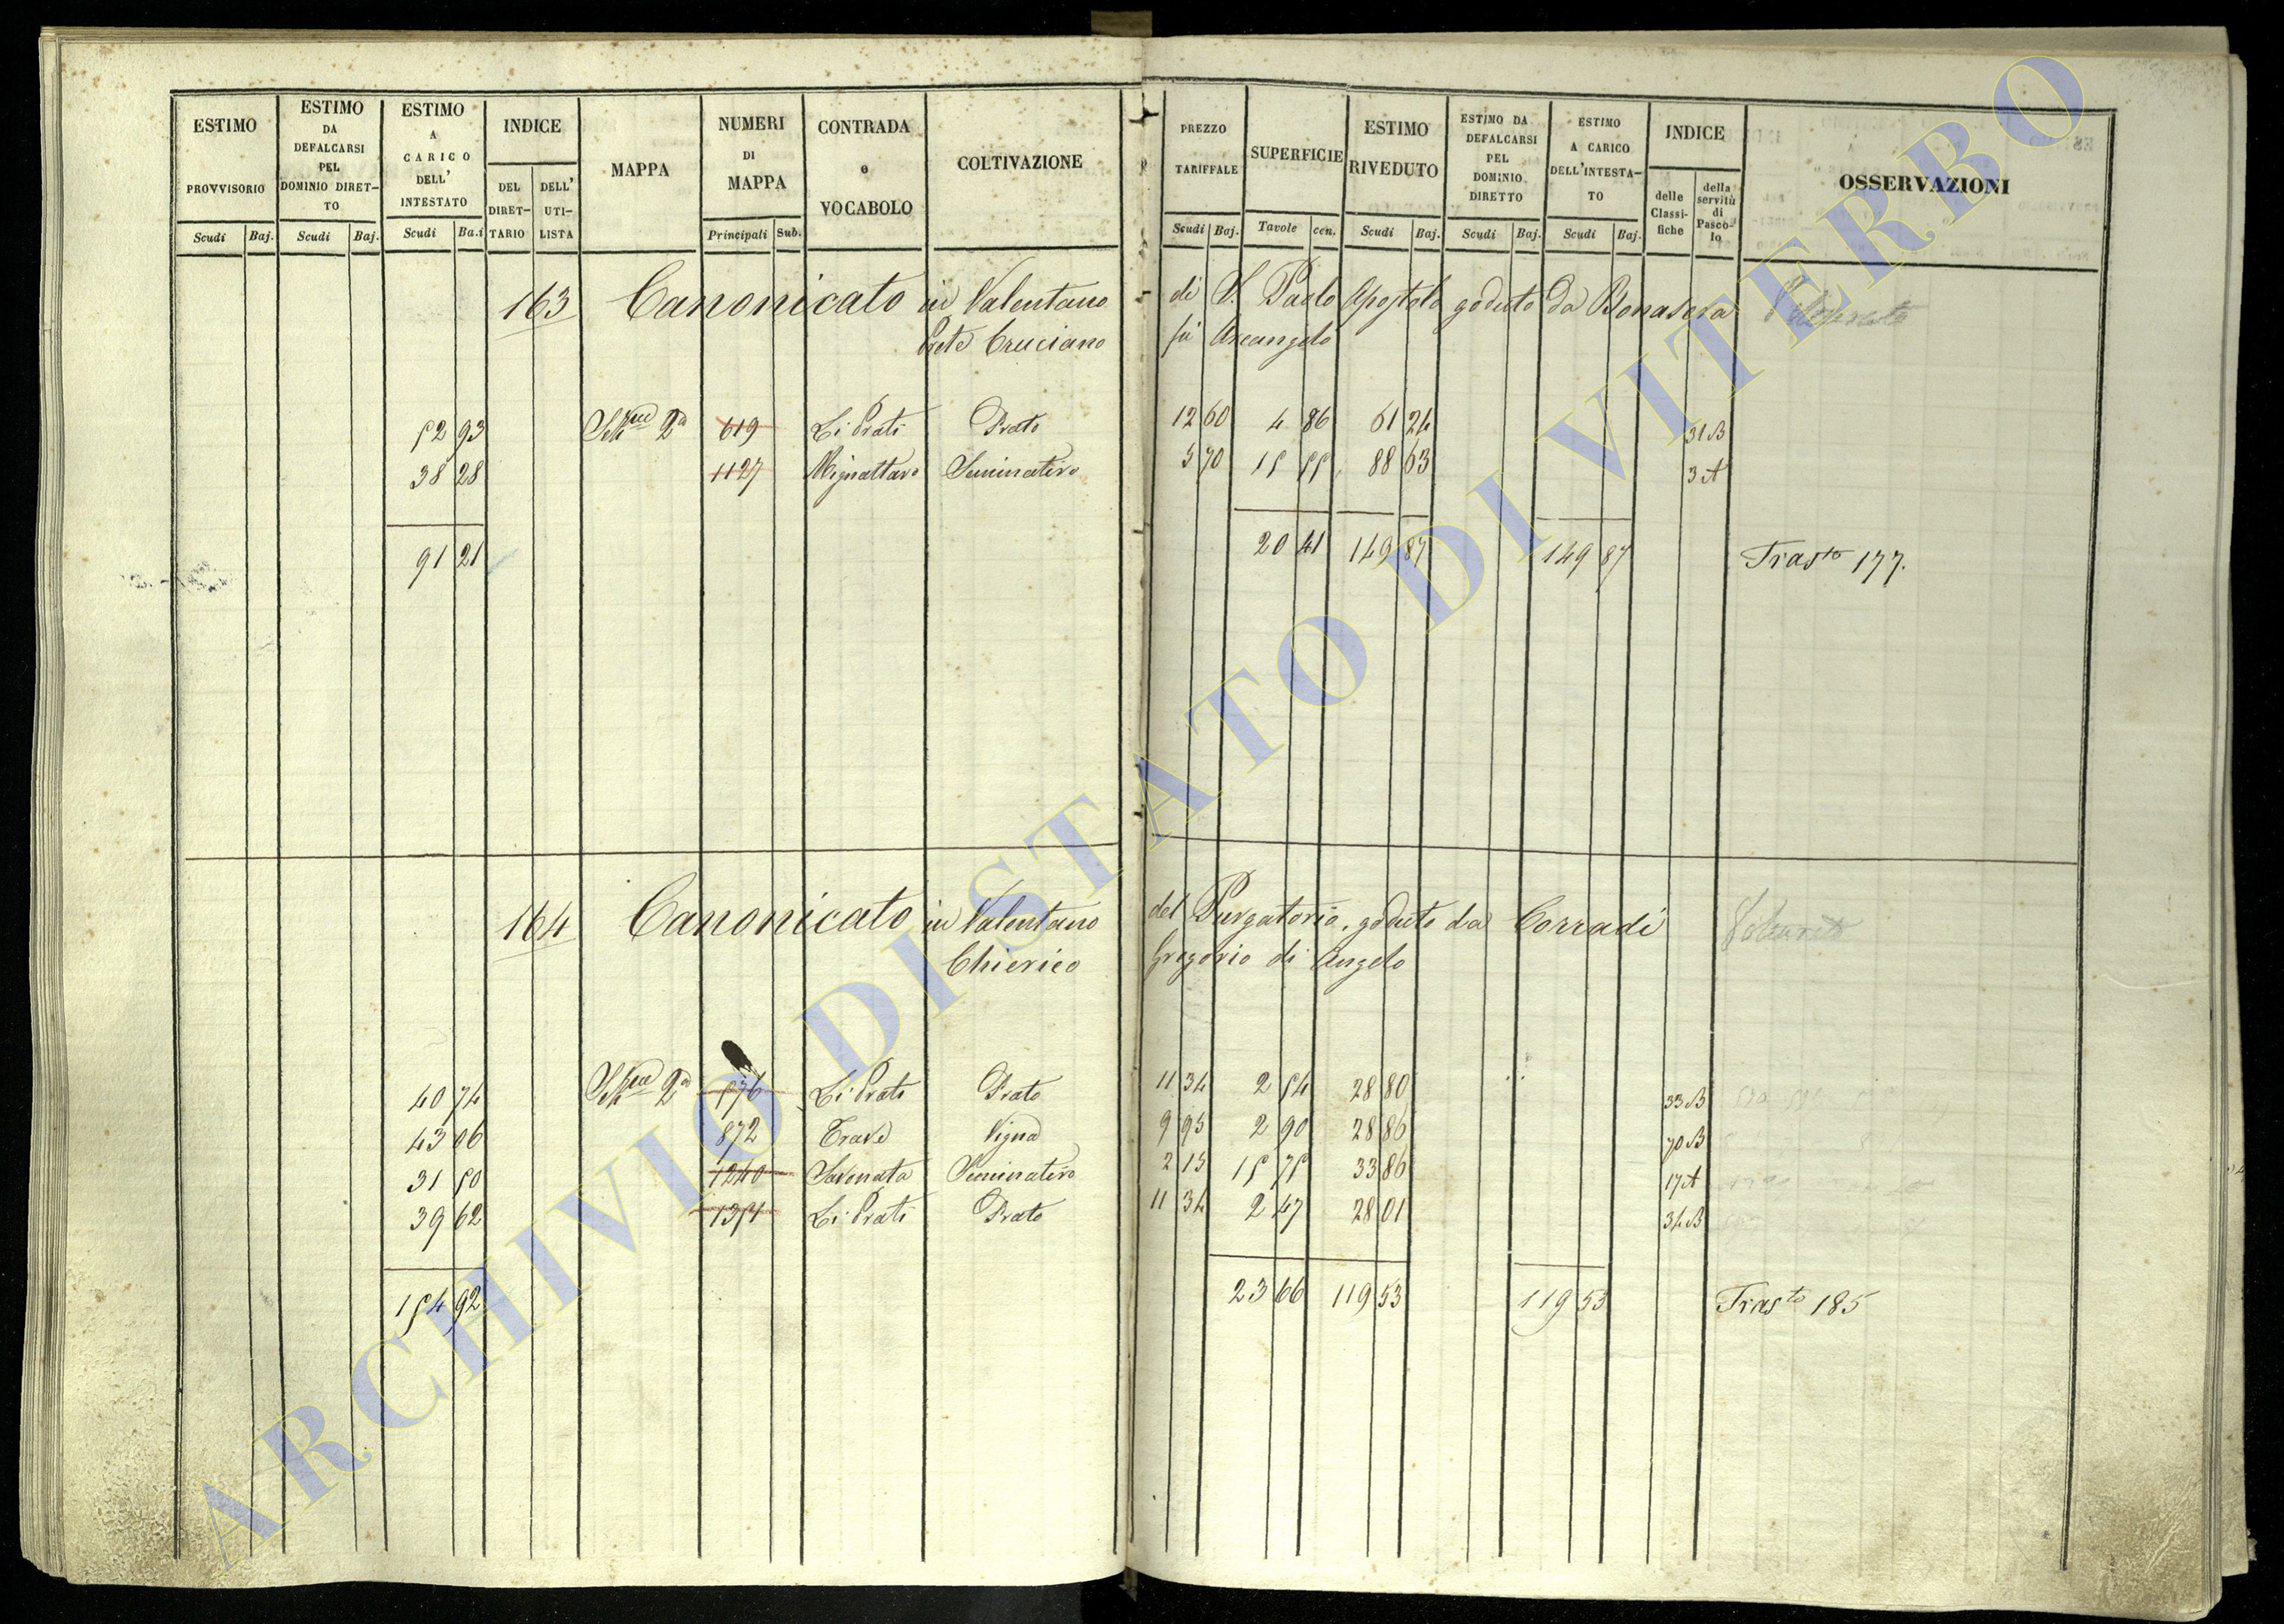 ESTIMO PROVVISORIO
Scudi Baj.
ESTIMO DA DEFALCARSI PEL DOMINIO DIRET-TO
Scudi Baj.
ESTIMO A CARICO DELL' INTESTATO
Scudi Ba.i
INDICE
DEL DIRET-TARIO
DELL' UTI-LISTA
MAPPA
NUMERI DI MAPPA
Principali Sub.
CONTRADA e VOCABOLO
COLTIVAZIONE
PREZZO TARIFFALE
Scudi Baj.
SUPERFICIE
Tavole cen.
ESTIMO RIVEDUTO
Scudi Baj.
ESTIMO DA DEFALCARSI PEL DOMINIO DIRETTO
Scudi Baj.
ESTIMO A CARICO DELL'INTESTA-TO
Scudi Baj.
INDICE
delle Classi-fiche
della servitù di Pasco-lo
OSSERVAZIONI
163 Canonicato in Valentano di S. Paolo Apostolo goduto da Bonasera
Prete Cruciano fù Arcangelo
52 93 2a 619 Li Prati Prato 12 60 4 86 61 24 31 B
38 28 1127 Mignattaro Seminativo 5 70 15 55 88 63 3 A
91 21 20 41 149 87 149 87 Trasto 177.
164 Canonicato in Valentano del Purgatorio, goduto da Corradi
Chierico Gregorio di Angelo
40 74 2a 576 Li Prati Prato 11 34 2 54 28 80 33 B
43 06 872 Trave Vigna 9 95 2 90 28 86 70 B
31 50 1240 Saronata Seminativo 2 15 15 75 33 86 17 A
39 62 1351 Li Prati Prato 11 34 2 47 28 01 34 B
154 92 23 66 119 53 119 53 Trasto 185
ARCHIVIO DI STATO DI VITERBO